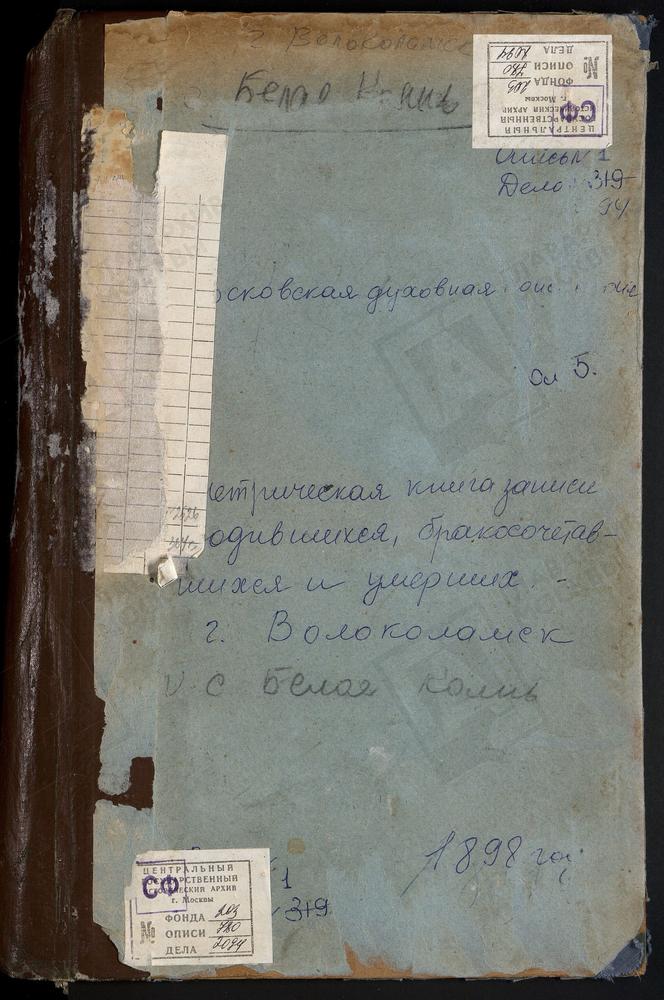 Волоколамск
ЦЕНТРАЛЬНЫЙ
ГОСУДАРСТВЕННЫЙ
ИСТОРИЧЕСКИЙ АРХИВ
г. Москвы
СФ
ФОНДА 203
№ ОПИСИ 780
ДЕЛА 2094
Опись № 1
Дело 319
94
осковская духовная
Ол 5.
етрическая книга записи
одившихся, бракосочетав-
шихся и умерших. -
г. Волоколамск
с Белая Колпь
1898 год
1
319
ЦЕНТРАЛЬНЫЙ
ГОСУДАРСТВЕННЫЙ
ИСТОРИЧЕСКИЙ АРХИВ
г. Москвы
СФ
ФОНДА 203
№ ОПИСИ 780
ДЕЛА 2094